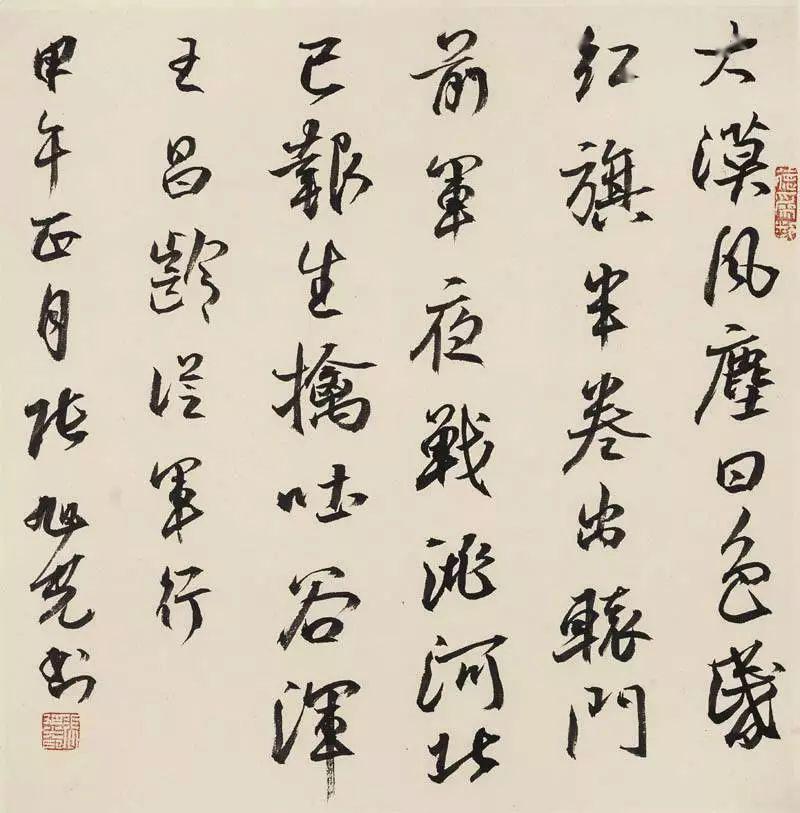 大漠风塵日色昏
红旗半卷出轅門
前軍夜戰洮河北
已報生擒吐谷渾
王昌齡從軍行
甲午正月張旭光書